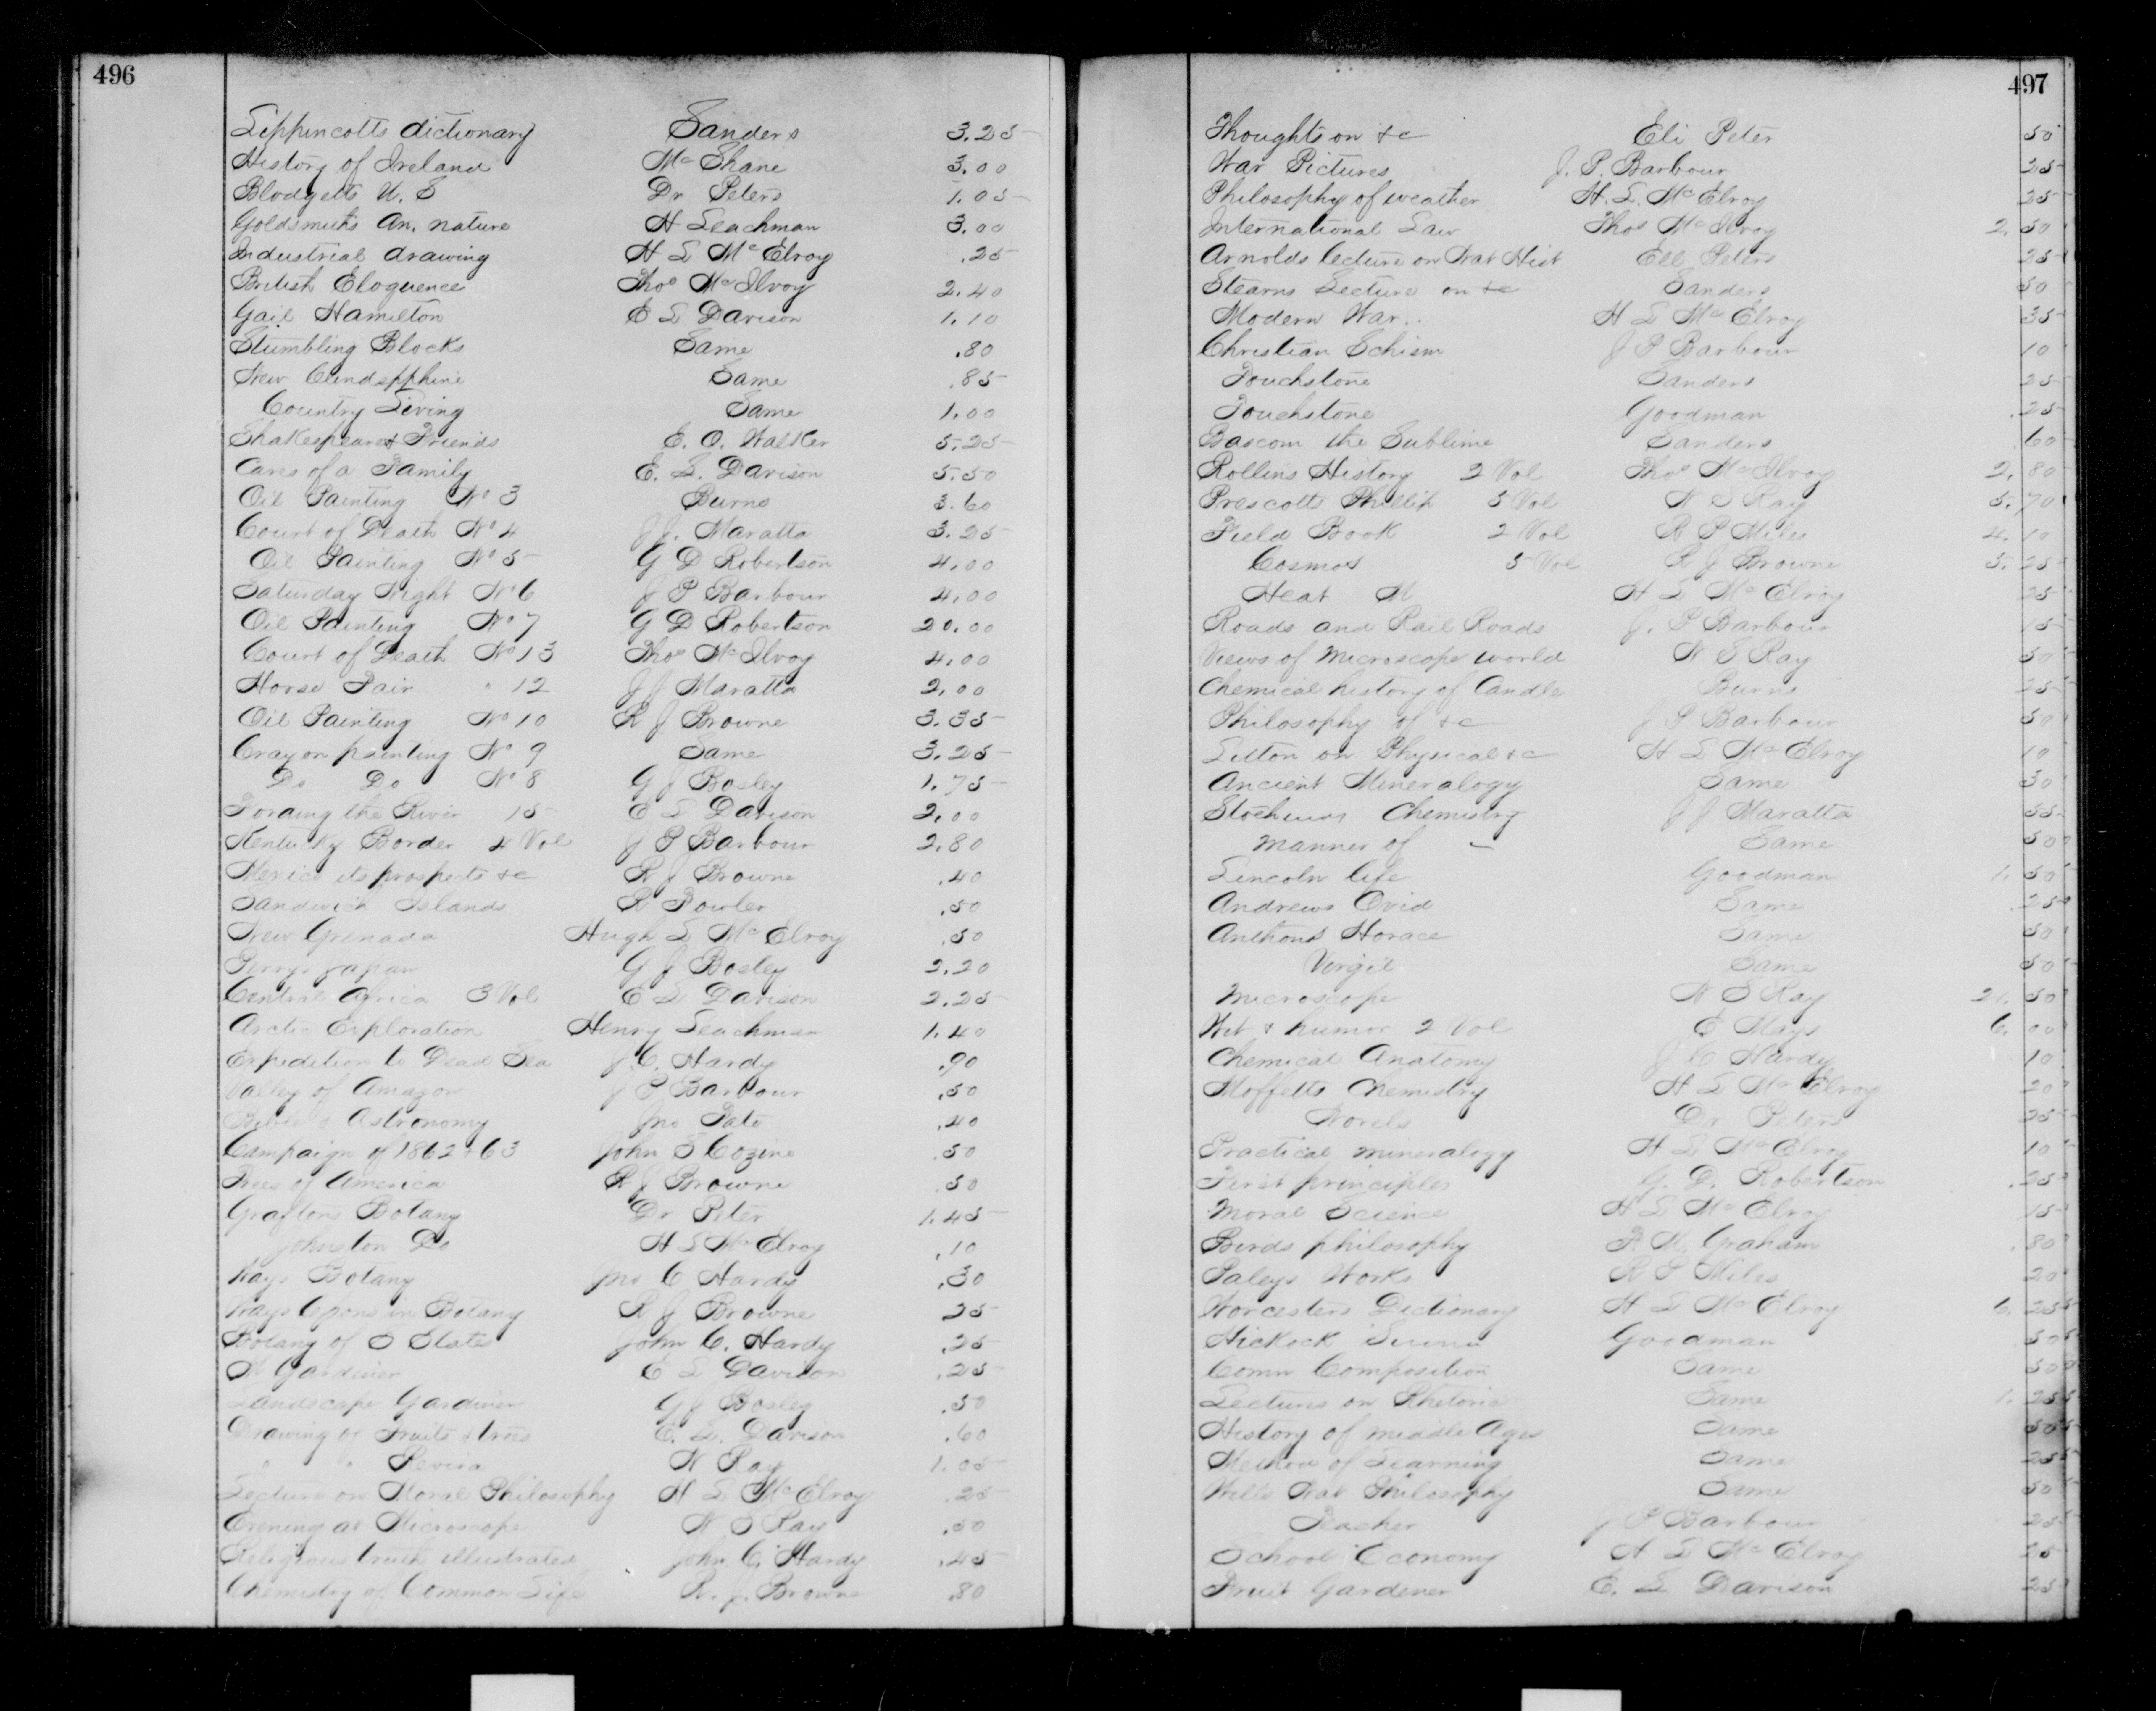 496
Lippincotts dictionary Sanders 3.25
History of Ireland Mc Shane 3.00
Blodgetts U. S Dr Peters 1.05
Goldsmiths An. nature H Leachman 3.00
Industrial drawing H L Mc Elroy .25
British Eloquence Thos McIlvoy 2.40
Gail Hamilton E L Davison 1.10
Stumbling Blocks Same .80
New Same .85
Country Living Same 1.00
Shakespeare & Friends E. O. Walker 5.25
Cares of a Family E. L. Davison 5.50
Oil Painting No 3 Burns 3.60
Court of Death No 4 J J. Maratta 3.25
Oil Painting No 5 G D Robertson 4.00
Saturday Night No 6 J P Barbour 4.00
Oil Painting No 7 G D Robertson 20.00
Court of Death No 13 Thos McIlvoy 4.00
Horse Fair " 12 J J Maratta 2.00
Oil Painting No 10 R J Browne 3.35
Crayon painting No 9 Same 3.25
Do Do No 8 G J Bosley 1.75
Fording the River 15 E L Davison 2.00
Kentucky Border 4 Vol J P Barbour 2.80
Mexico its prospects &c R J Browne .40
Sandwich Islands R Fowler .50
New Grenada Hugh L Mc Elroy .50
Perrys Japan G J Bosley 2.20
Central Africa 3 Vol E L Davison 2.25
Arctic Exploration Henry Leachman 1.40
Expedition to Dead Sea J. C. Hardy .90
Valley of Amazon J P Barbour .50
Bible & Astronomy Jno Pate .40
Campaign of 1862 & 63 John S Cozine .50
Trees of America R J Browne .50
Botany Dr Peter 1.45
Johnston Do H L Mc Elroy .10
Botany Jno C Hardy .30
in Botany R J Browne 25
Botany of S States John C. Hardy .25
Gardiner E L Davison .25
Landscape Gardiner G J Bosley .50
Drawing of Fruits & trees E. L. Davison .60
" " N Ray 1.05
Lecture on Moral Philosophy H L Mc Elroy .25
Evening at Microscope N S Ray .50
Religious truth illustrated John C. Hardy .45
Chemistry of Common Life R. J. Browne .80
497
Thoughts on &c Eli Peter 50
War Pictures J. P. Barbour 25
Philosophy of weather H. L. Mc Elroy 25
International Law Thos McIlvoy 2.50
Arnolds lecture on Nat Hist Eli Peters 25
Stearns Lecture on &c Sanders 50
Modern War H L Mc Elroy 35
Christian Schism J P Barbour 10
Touchstone Sanders 25
Touchstone Goodman .25
Bascom the Sublime Sanders 60
Rollins History 2 Vol Thos McIlvoy 2.80
Prescotts Phillip 3 Vol N S Ray 5.70
Field Book 2 Vol R P Miles 4.10
Cosmos 5 Vol R J Browne 5.25
Heat H L Mc Elroy 25
Roads and Rail Roads J. P Barbour 15
Views of Microscope world N S Ray 50
Chemical history of Candle Burns 25
Philosophy of &c J P Barbour 50
on Physical &c H L Mc Elroy 10
Ancient Mineralogy Same 30
Chemistry J J Maratta
manner of Same 50
Lincoln life Goodman 1.50
Andrews Ovid Same .25
Anthons Horace Same 50
Virgil Same 50
Microscope N S Ray 21.50
Wit & humor 2 Vol E Mays 6.00
Chemical Anatomy J C Hardy 10
Moffetts Chemistry H L Mc Elroy 20
Novels Dr Peters 25
Practical mineralogy H L Mc Elroy 10
First principles G. D. Robertson .25
Moral Science H L Mc Elroy 15
Birds philosophy P. M. Graham .80
Paleys Works R P Miles 20
Worcesters Dictionary H L Mc Elroy 6.25
Hickock Goodman 50
Comn Composition Same 50
Lectures on Rhetoric Same 1.25
History of middle Ages Same 50
Method of Learning Same 25
Wells Nat Philosophy Same 50
Teacher J P Barbour 25
School Economy H L Mc Elroy 25
Fruit Gardener E. L Davison 25